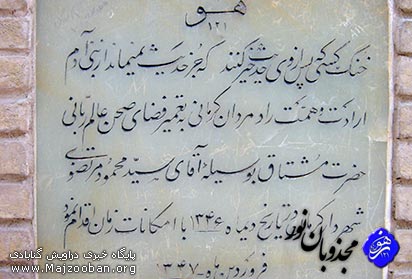 هو
۱۲۱
خنک کسی که پس از وی حدیث خیر کنند که جز حدیث نمیماند از بنی آدم
ارادت و همت راد مردان کرمانی بتعمیر فضای صحن عالم ربانی
حضرت مشتاق بوسیله آقای سید محمود مرتضوی
شهردار در تاریخ دیماه ۱۳۴۶ با امکانات زمان اقدام نمود
فروردین ماه ۱۳۴۷
مجذوبان نور
هو
۱۲۱
پایگاه خبری دراویش گنابادی
www.Majzooban.org